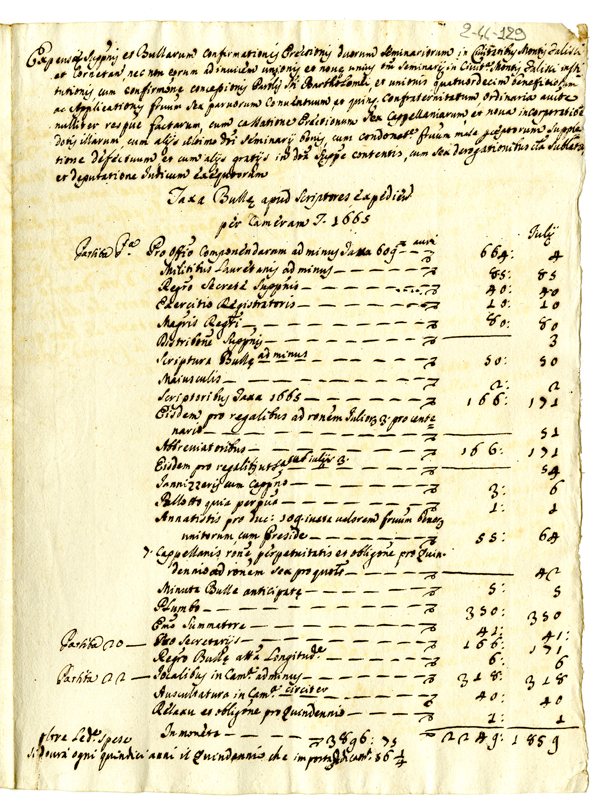 2-44-129
Expensæ Supplnis et Bullarum Confirmationis Erectionis duorum Seminariorum in Civitatibus Montis Falisci
et Corneran, nec non eorum ad invicem unionis et nove unius Seminarij in Civit. Montis Falisci insti
tutionis cum confirmone concessionis Sti Bartholomei et unionis quatuordecim beneficiorum
ac Applicationis fruum sex parvorum Conventuum et Confraternitatum ordinaria aucte
nulliter respue factarum, cum cassatione Erectionum sex Cappellaniarum et nova incorporatione
illarum, cum alijs ultimo dri Seminarij bonis cum condonatne fruum male perceptorum Supple
tione defectuum et cum alijs gratijs in dta Supple contentis, cum sex derogationibus
et deputatione Iudicum exequorum
Taxa Bullę apud Scriptores expedien
per Cameram f. 1665
Iulij
Partita Pa. Pro Offio Componendarum ad minus Taxa 609 auri — 664: 4
Militibus Lauretanis ad minus — 85: 85
Regro Secreto Supplnis — 40: 40
Exercitio Registratoris — 10: 10
Magris Regri — 80: 80
Distribone Supplnis — 3
Scriptura Bullę ad minus — 50: 50
Maiusculis — 2: 2
Scriptoribus Taxa 1665 — 166: 171
Eisdem pro regalibus ad ronem Iulior. 3: pro cente
nario — 51
Abbreviatoribus — 166: 171
Eisdem pro regalibus Iulijs 3. — 54
Iannizzeris cum Cappno — 3: 6
Pallotto quia perpua — 1: 1
Annatistis pro duc: 109 valorem fruum
unitorum, cum Preside — 55: 64
7. Cappellanis rone perpetuitatis et obligone pro Quin
dennio ad ronem sex pro quolt — 42
Minuta Bulle anticipatę — 5: 5
Plumbo — 350: 350
Emo Summatore — 41: 41:
Partita 20 — Secretarijs — 166: 171
Regro Bullę Longitude — 6: 6
Partita 22 — Iocalibus in Cama ad minus — 318: 318
Auscultatura in Cama circiter — 40: 40
et obligone pro Quindennio — 1: 1
In moneta — 3896: 75 — 2249: 1859
oltre Led. Spese
si dovrà ogni quindici anni il Quindennio che importa 56 1/4